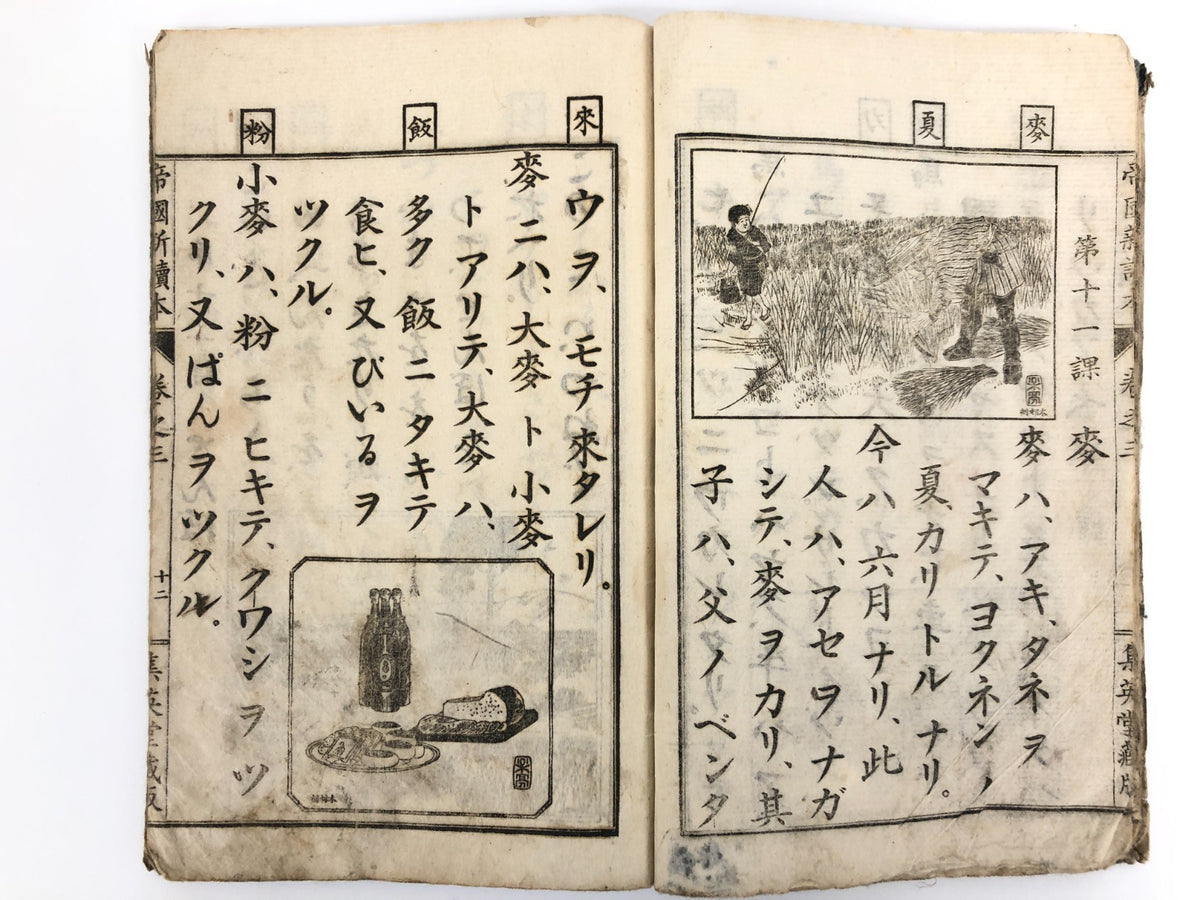 麥
夏
帝國新讀本 卷之三
集英堂藏版
第十一課 麥
麥 ハ、アキ、タネ ヲ
マキテ、ヨクネン ノ
夏、カリ トル ナリ。
今 ハ 六月 ナリ、此
人 ハ、アセ ヲ ナガ
シテ、麥 ヲ カリ、其
子 ハ、父 ノ ベンタ
來
飯
粉
ウ ヲ、モチ 來タレリ。
麥 ニハ、大麥 ト 小麥
ト アリテ、大麥 ハ、
多ク 飯 ニ タキテ
食ヒ、又 びいる ヲ
ツクル。
小麥 ハ、粉 ニ ヒキテ、クワシ ヲ ツ
クリ、又 ぱん ヲ ツクル。
帝國新讀本 卷之三 十二
集英堂藏版